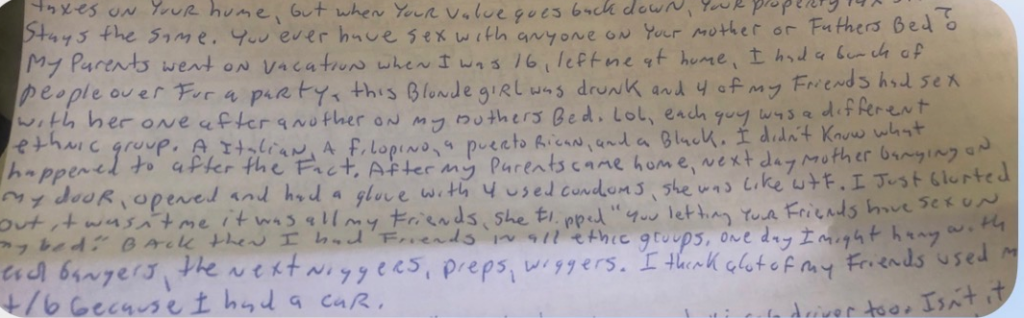 taxes on your home, but when your value goes back down, your property tax
Stays the same. You ever have sex with anyone on your mother or Fathers Bed?
My Parents went on vacation when I was 16, left me at home, I had a bunch of
people over For a party, this Blonde giRL was drunk and 4 of my Friends had sex
with her one after another on my mothers Bed. Lol, each guy was a different
ethnic group. A Italian, A filopino, a puecto Rican, and a Black. I didn't Know what
happened to after the Fact. After my Parents came home, next day mother banging on
my dooR, opened and had a glove with 4 used condoms, she was like wtf. I Just blurted
out it wasn't me it was all my Friends, she flipped "you letting your Friends have sex on
my bed." Back then I had Friends in all ethic groups, one day I might hang with
bangers, the next Niggers, preps, wiggers. I think alot of my Friends used m
b because I had a caR.
driver too. Isn't it